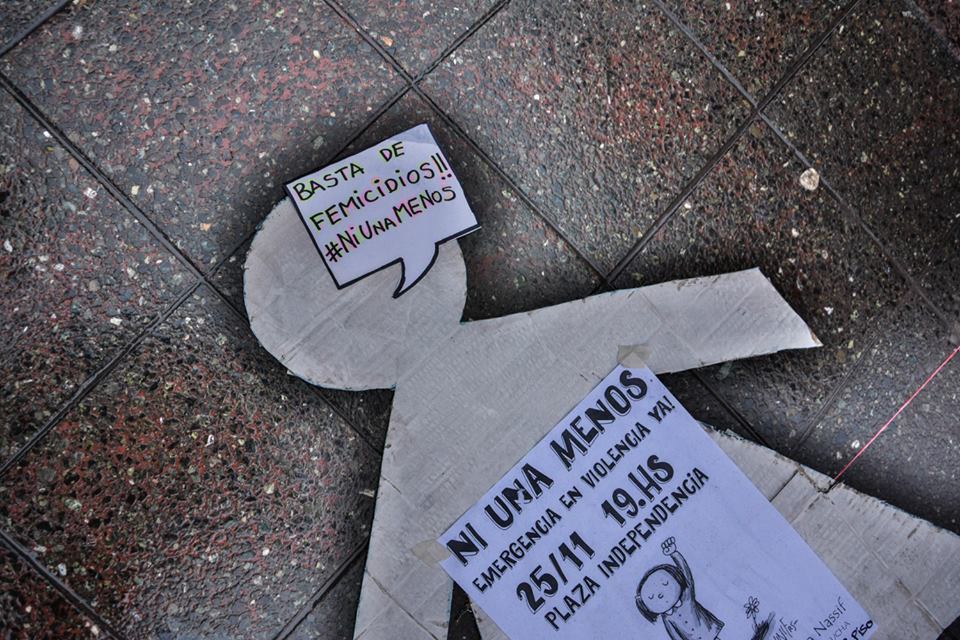 BASTA DE
FEMICIDIOS!!
#NiUnaMENOS
NI UNA MENOS
EMERGENCIA EN VIOLENCIA YA!
25/11 19.HS
PLAZA INDEPENDENCIA
Nassif
PISO